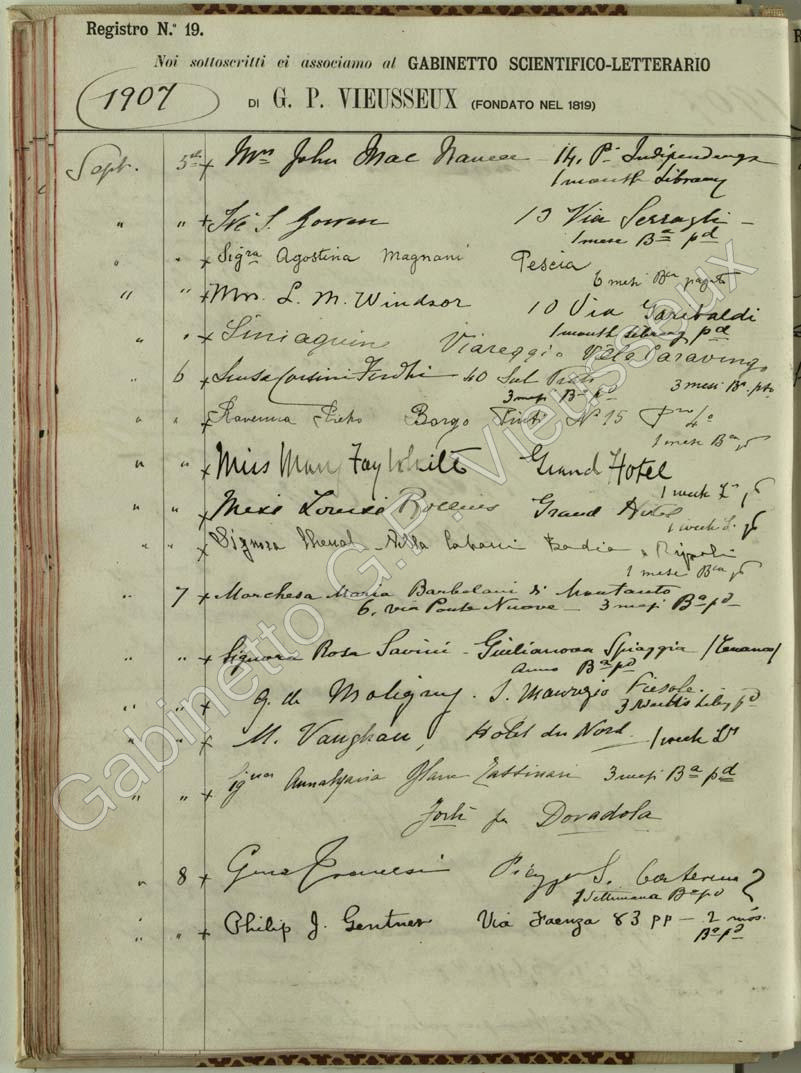 Registro N.º 19.
Noi sottoscritti ci associamo al GABINETTO SCIENTIFICO-LETTERARIO
1907
DI G. P. VIEUSSEUX (FONDATO NEL 1819)
Sept. 5 x Mrs John Mac 14, Pª Indipendenza
1 month Library
" " x S. 13 Via Serragli
1 mese Bª pd
" " x Sigra Agostina Magnani Pescia
6 mesi Bca pagato
" " x Mrs. L. M. Windsor 10 Via Garibaldi
1 month Library pd
" " x Siniaguine Viareggio Villa
3 mesi Bª. pto
" 6 x Corsini 40 Sul Prato
3 mesi Bª pd
" " x Ravenna Borgo Pinti Nº 15 Pmo
1 mese Bca
" " x Miss Mary Fay White Grand Hotel
1 week
" " x Miss Louise Rollins Grand Hotel
1 week
" " x Signora Villa Badia a Ripoli
1 mese Bca
" 7 x Marchesa Maria Barbolani di Montauto
6, via Ponte Nuovo 3 mesi Bª pd
" " x Signora Rosa Savini - Giulianova Spiaggia (Teramo)
anno Bª pd
" " x G. de S. Maurizio Fiesole.
3 months
" " x M. Vaughan, Hôtel du Nord. 1 week
" " x Annamaria Tassinari 3 mesi Bª pd
Forlì per Dovadola
" 8 x Piazza S. Caterina 2
1 Settimana Bª pd
" " x Philip J. Gentner Via Faenza 83 pp - 2 mos.
Bª pd
Gabinetto G.P. Vieusseux